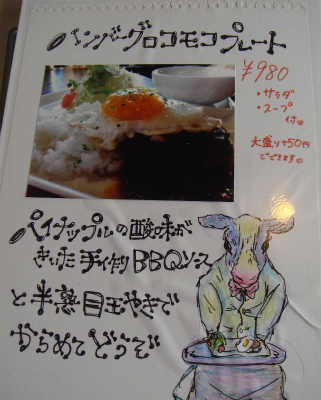 ハンバーグロコモコプレート
¥980
・サラダ
・スープ
付
大盛り+50円
でできます。
パイナップルの酸味が
きいた手作りBBQソース
と半熟目玉やきで
からめてどうぞ